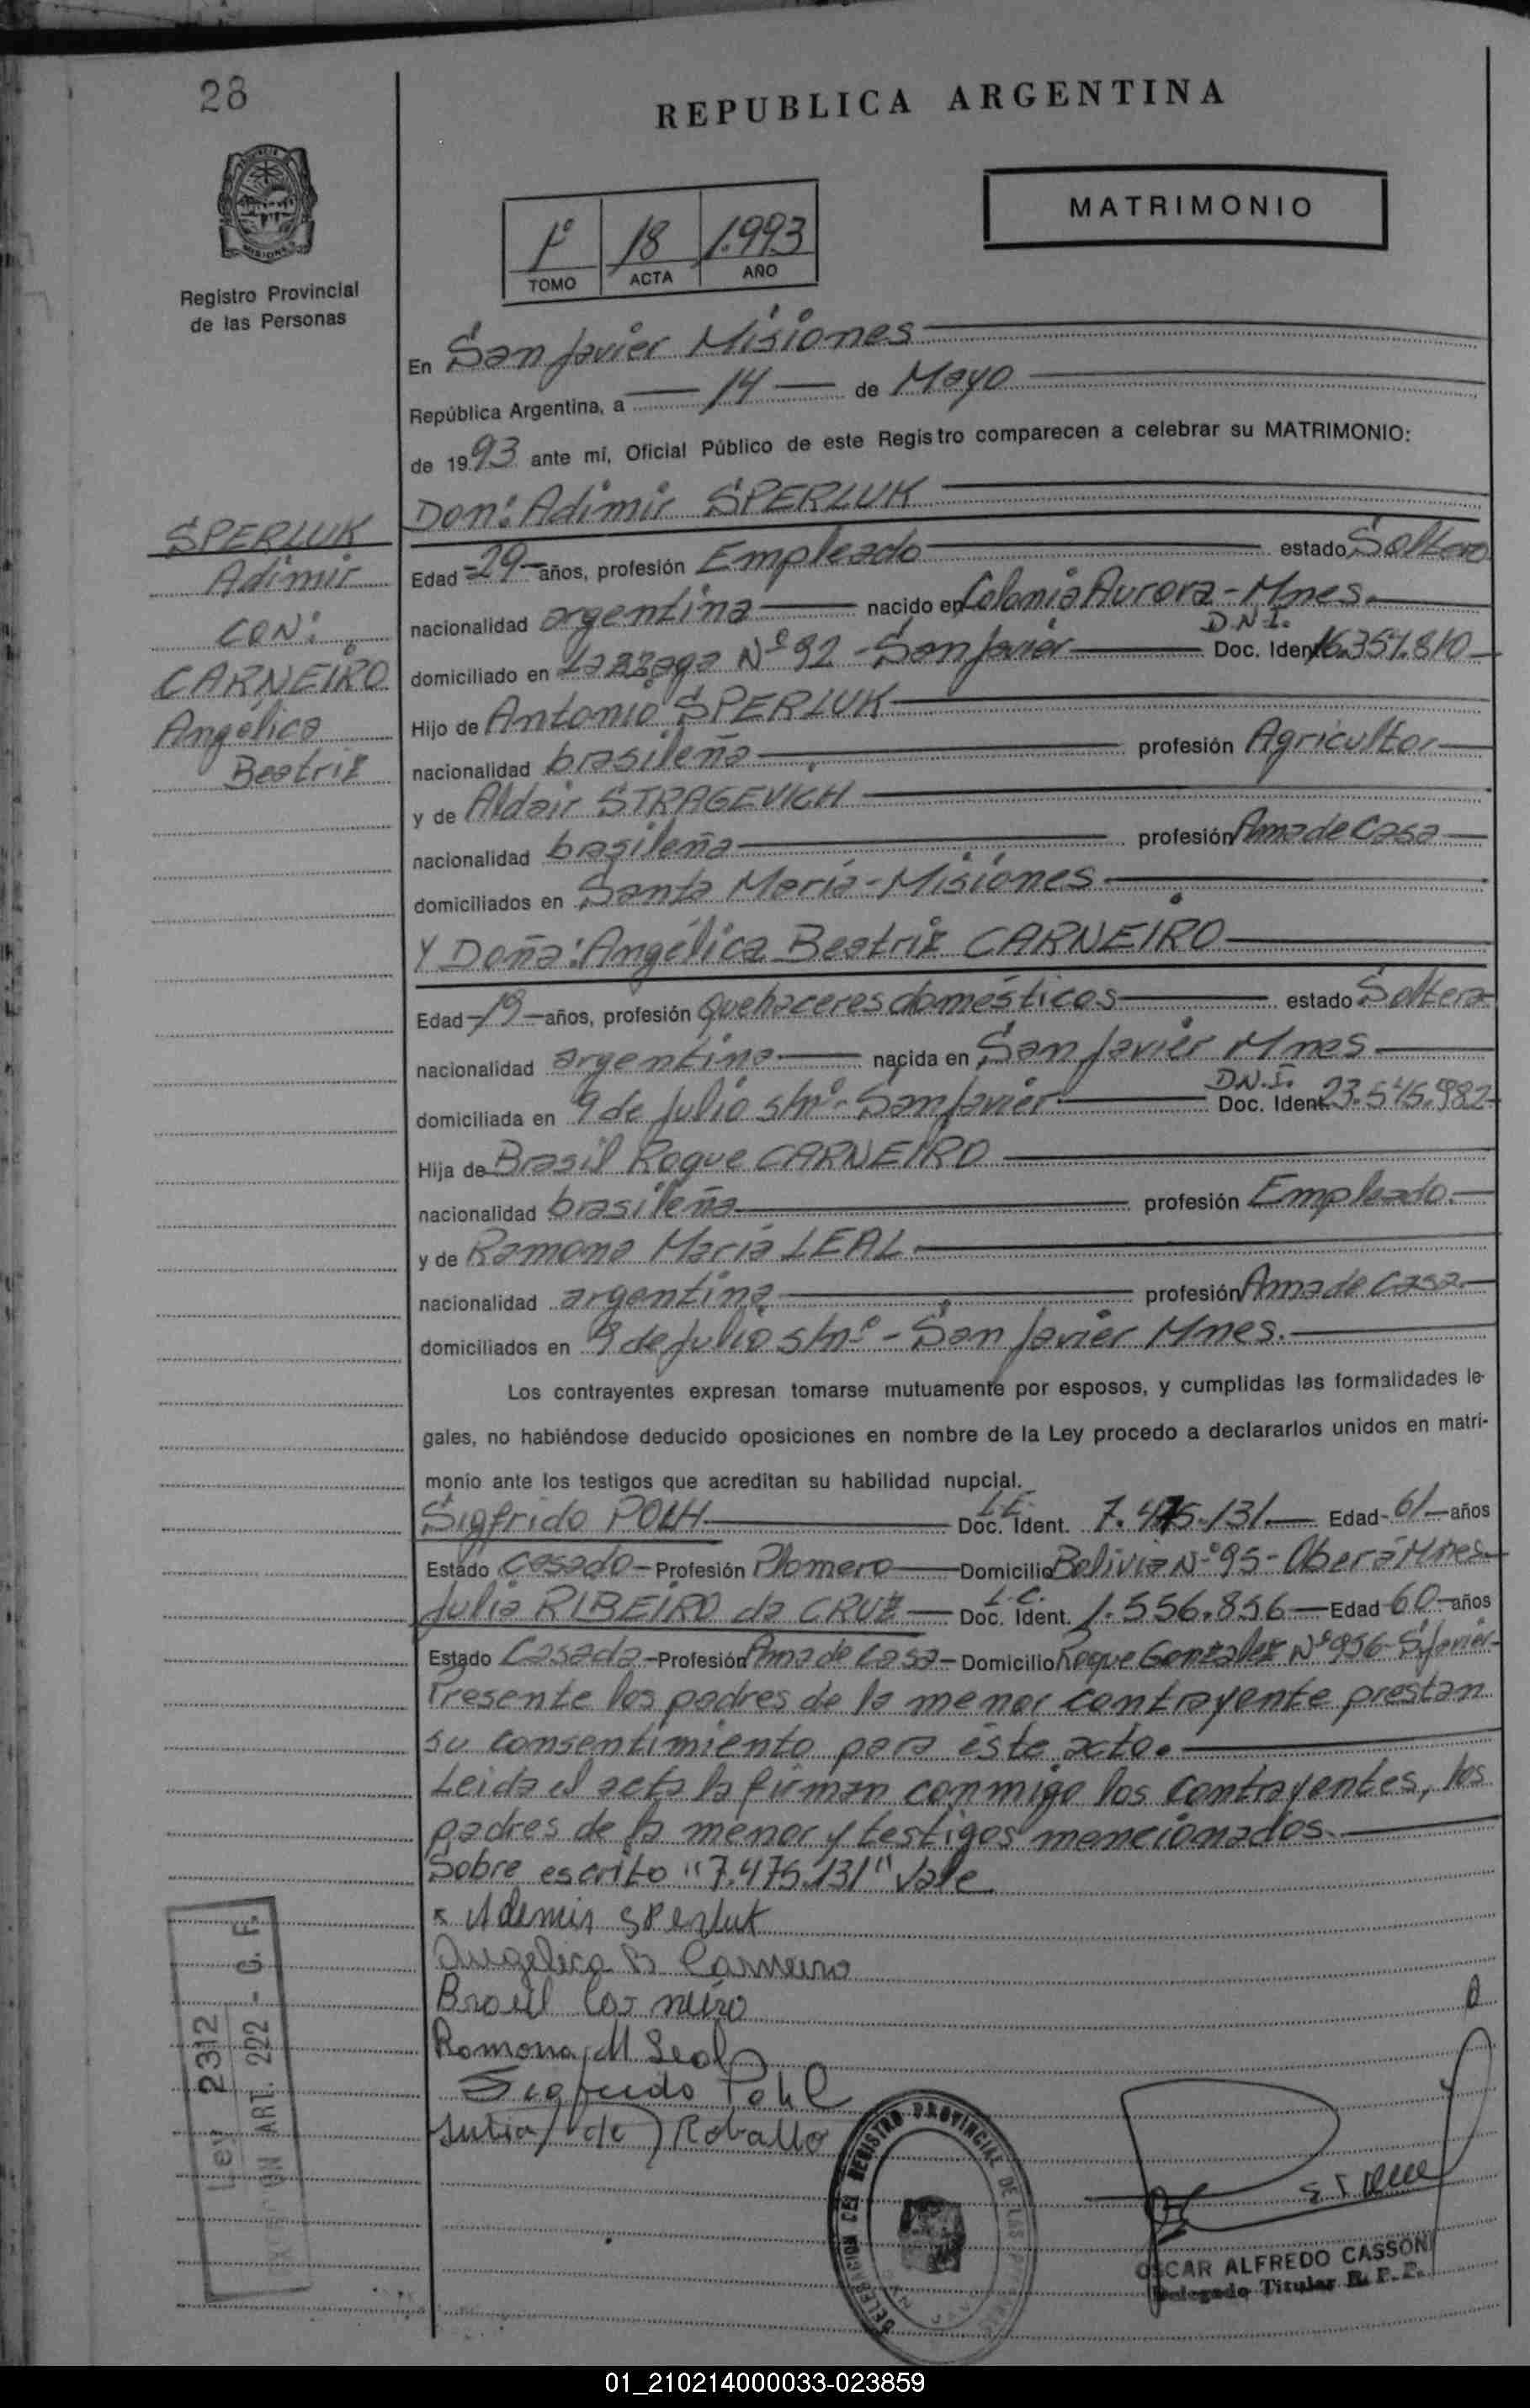 28
REPUBLICA ARGENTINA
MATRIMONIO
1º 18 1.993
TOMO ACTA AÑO
Registro Provincial
de las Personas
En San Javier Misiones
República Argentina, a 14 de Mayo
de 1993 ante mí, Oficial Público de este Registro comparecen a celebrar su MATRIMONIO:
SPERLUK
Adimir
CON:
CARNEIRO
Angélica
Beatriz
Don: Adimir SPERLUK
Edad 29 años, profesión Empleado estado Soltero
nacionalidad argentina nacido en Colonia Aurora - Mnes.
D.N.I.
domiciliado en Nº 92 - San Javier Doc. Ident. 16.351.810
Hijo de Antonio SPERLUK
nacionalidad brasileña profesión Agricultor
y de Aldair STRAGEVICH
nacionalidad brasileña profesión Ama de Casa
domiciliados en Santa María - Misiones
Y Doña: Angélica Beatriz CARNEIRO
Edad 19 años, profesión Quehaceres domésticos estado Soltera
nacionalidad argentina nacida en San Javier Mnes
D.N.I.
domiciliada en 9 de Julio s/nº - San Javier Doc. Ident. 23.545.982
Hija de Brasil Roque CARNEIRO
nacionalidad brasileña profesión Empleado.
y de Ramona María LEAL
nacionalidad argentina profesión Ama de Casa
domiciliados en 9 de Julio s/nº - San Javier Mnes.
Los contrayentes expresan tomarse mutuamente por esposos, y cumplidas las formalidades le-
gales, no habiéndose deducido oposiciones en nombre de la Ley procedo a declararlos unidos en matri-
monio ante los testigos que acreditan su habilidad nupcial.
L.E.
Sigfrido POLH Doc. Ident. 7.475.131 Edad 61 años
Estado Casado - Profesión Plomero Domicilio Bolivia Nº 95 - Oberá Mnes.
L.C.
Julia RIBEIRO da CRUZ Doc. Ident. 1.556.856 Edad 60 años
Estado Casada - Profesión Ama de Casa - Domicilio Roque Gonzalez Nº 956 - S. Javier
Presente los padres de la menor contrayente prestan
su consentimiento para éste acto.
Leida el acta la firman conmigo los contrayentes, los
padres de la menor y testigos mencionados
Sobre escrito "7.475.131" Vale
Ademir Sperluk
Angelica B Carneiro
Brasil Carneiro
Ramona M Leal
Sigfrido Pohl
Julia de Roballo
Ley 2312
ART. 222 - G. F.
DELEGACION DEL REGISTRO PROVINCIAL DE LAS
OSCAR ALFREDO CASSONI
Delegado Titular R. P. P.
01_210214000033-023859